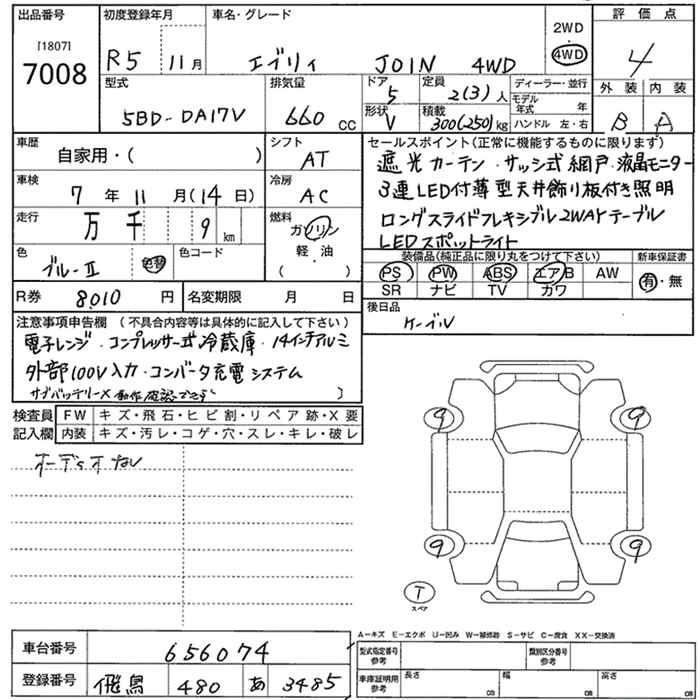 出品番号
[1807]
7008
初度登録年月
R5 11月
車名・グレード
エブリィ JOIN 4WD
2WD
4WD
評価点
4
外装 内装
B A
型式
5BD-DA17V
排気量
660 CC
ドア
5
形状
V
定員
2(3)人
積載
300(250)kg
ディーラー・並行
モデル年式 年
ハンドル 左・右
車歴
自家用・( )
シフト
AT
車検
7年11月(14日)
冷房
AC
走行
万 千 9 km
燃料
ガソリン
軽・油
( )
色
ブルーⅡ
色替
色コード
R券 8,010 円
名変期限 月 日
セールスポイント(正常に機能するものに限ります)
遮光カーテン・サッシ式網戸・液晶モニター
3連LED付薄型天井飾り板付き照明
ロングスライドフレキシブル2WAYテーブル
LEDスポットライト
装備品(純正品に限り丸をつけて下さい)
PS PW ABS エアB AW
SR ナビ TV カワ
新車保証書
有・無
後日品
ケーブル
注意事項申告欄 (不具合内容等は具体的に記入して下さい)
電子レンジ・コンプレッサー式冷蔵庫・14インチアルミ
外部100V入力・コンバータ充電システム
サブバッテリー×動作確認できず )
検査員記入欄
FW キズ・飛石・ヒビ割・リペア跡・X要
内装 キズ・汚レ・コゲ・穴・スレ・キレ・破レ
オーディオなし
9 9
9 9
T
スペア
A-キズ E-エクボ U-凹み W-補修跡 S-サビ C-腐食 XX-交換済
車台番号 656074
登録番号 飛鳥 480 あ 3485
型式指定番号 参考
類別区分番号 参考
車庫証明用 参考
長さ cm
幅 cm
高さ cm